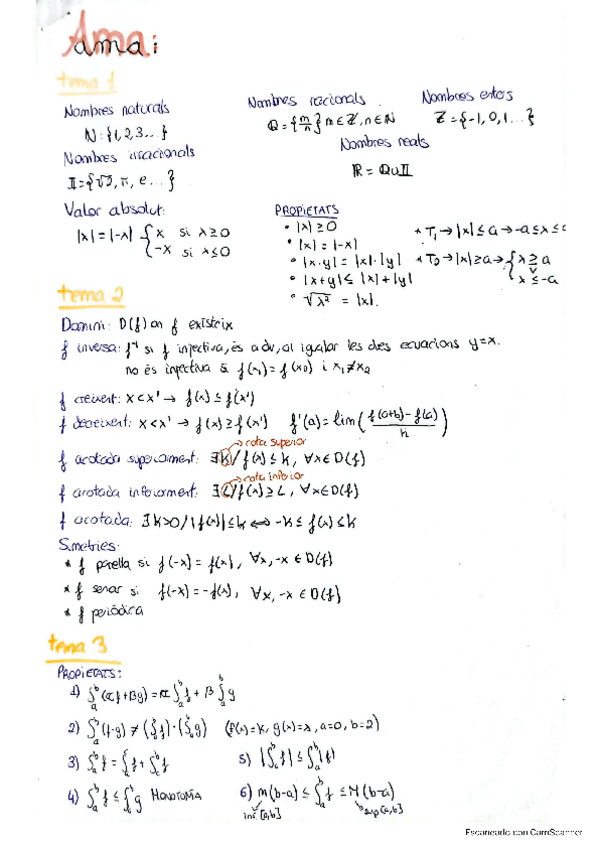 Ama
ama:
tema 1
Nombres naturals
Nombres racionals
Nombres enters
N: {1,2,3...}
Q = {m/n} m ∈ Z, n ∈ N
Z = {-1, 0, 1...}
Nombres irracionals
Nombres reals
I = {√2, π, e...}
R = Q ∪ I
Valor absolut:
PROPIETATS
|x| = |-x| { x si x ≥ 0
-x si x ≤ 0
• |x| ≥ 0
• |x| = |-x|
• |x·y| = |x|·|y|
• |x+y| ≤ |x| + |y|
• √x² = |x|.
* T₁ → |x| ≤ a → -a ≤ x ≤ a
* T₂ → |x| ≥ a → { x ≥ a
v
x ≤ -a
tema 2
Domini: D(f) on f existeix
f inversa: f⁻¹ si f injectiva, és a dir, al igualar les dues equacions y=x.
no és injectiva si f(x₁) = f(x₂) i x₁≠x₂
f creixent: x < x' → f(x) ≤ f(x')
f decreixent: x < x' → f(x) ≥ f(x') f'(a) = lim( f(a+h) - f(a) / h )
→ cota superior
f acotada superiorment: ∃ k / f(x) ≤ k, ∀x ∈ D(f)
→ cota inferior
f acotada inferiorment: ∃ L / f(x) ≥ L, ∀x ∈ D(f)
f acotada: ∃ k>0 / |f(x)| ≤ k ⟺ -k ≤ f(x) ≤ k
Simetries:
* f parella si f(-x) = f(x), ∀x, -x ∈ D(f)
* f senar si f(-x) = -f(x), ∀x, -x ∈ D(f)
* f periòdica
tema 3
PROPIETATS:
1) ∫ₐᵇ (αf + βg) = α ∫ₐᵇ f + β ∫ₐᵇ g
2) ∫ₐᵇ (f·g) ≠ (∫ₐᵇ f)·(∫ₐᵇ g) (f(x)=x, g(x)=x, a=0, b=2)
3) ∫ₐᵇ f = ∫ₐᶜ f + ∫ᶜᵇ f
5) |∫ₐᵇ f| ≤ ∫ₐᵇ |f|
4) ∫ₐᵇ f ≤ ∫ₐᵇ g MONOTONIA
6) m(b-a) ≤ ∫ₐᵇ f ≤ M(b-a)
inf [a,b]
sup [a,b]
Escaneado con CamScanner